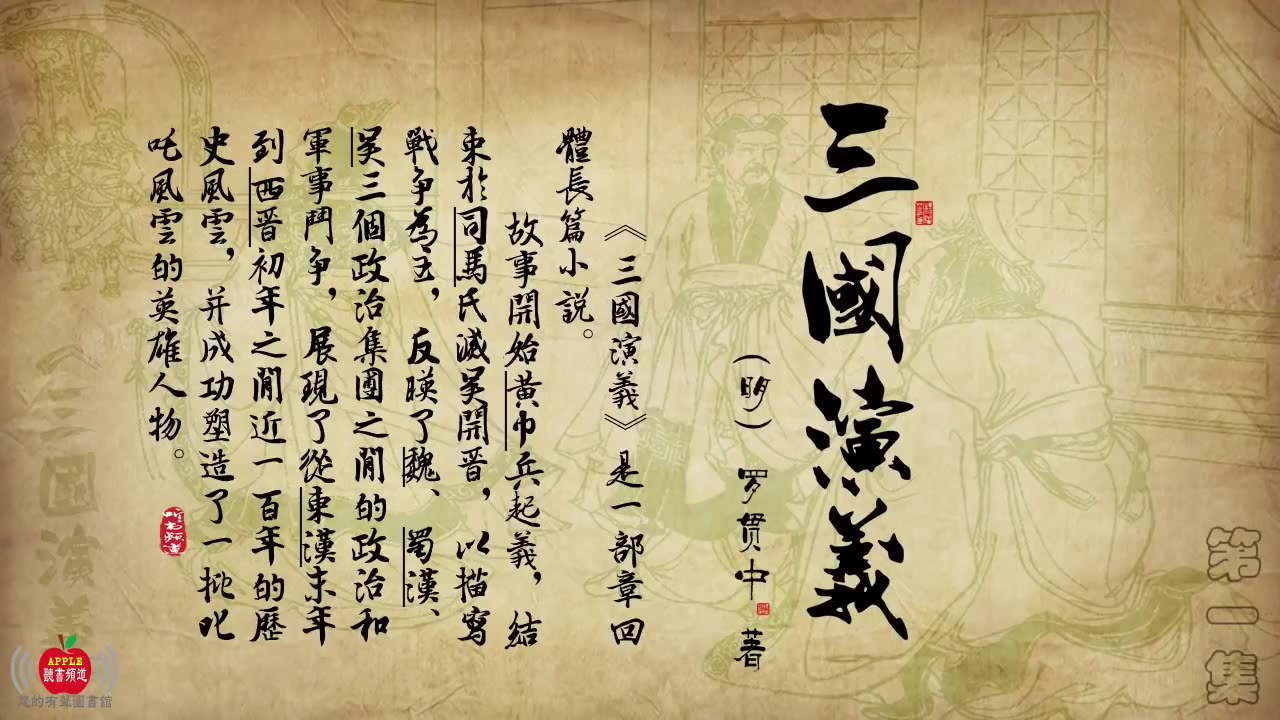 三國演義
(明) 罗贯中 著
《三國演義》是一部章回
體長篇小説。
故事開始黃巾兵起義,結
束於司馬氏滅吴開晉,以描寫
戰争為主,反暎了魏、蜀漢、
吴三個政治集團之間的政治和
軍事鬥争,展現了從東漢末年
到西晉初年之間近一百年的歷
史風雲,并成功塑造了一批叱
吒風雲的英雄人物。
第一集
《三國演義
APPLE
聽書頻道
的有聲圖書館